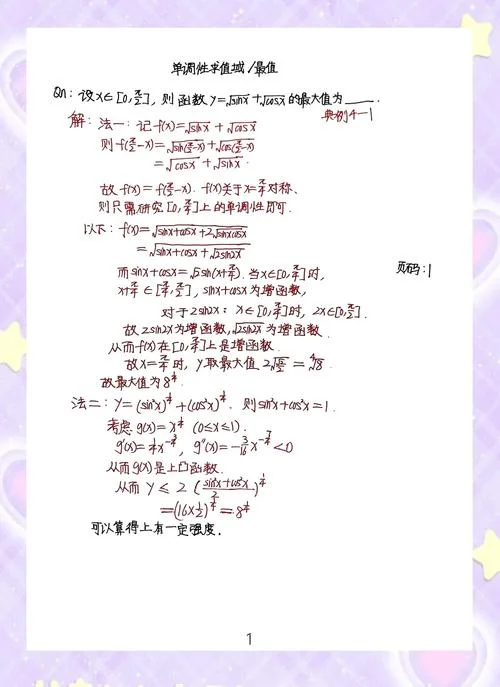 单调性求值域/最值
Qn: 设x∈[0,π/2], 则函数y=√sinx+√cosx的最大值为____.
典例4-1
解: 法一: 记f(x)=√sinx+√cosx
则f(π/2-x)=√sin(π/2-x)+√cos(π/2-x)
=√cosx+√sinx.
故f(x)=f(π/2-x). f(x)关于x=π/4对称、
则只需研究[0,π/4]上的单调性即可.
以下: f(x)=√(sinx+cosx+2√sinxcosx)
=√(sinx+cosx+√2sin2x)
而sinx+cosx=√2sin(x+π/4). 当x∈[0,π/4]时,
页码: 1
x+π/4∈[π/4,π/2], sinx+cosx为增函数,
对于2sin2x: x∈[0,π/4]时, 2x∈[0,π/2].
故2sin2x为增函数, √2sin2x为增函数.
从而f(x)在[0,π/4]上是增函数.
故x=π/4时, y取最大值 = ⁴√8.
故最大值为8^(1/4)
法二: y=(sin²x)^(1/4)+(cos²x)^(1/4). 则sin²x+cos²x=1.
考虑g(x)=x^(1/4) (0≤x≤1).
g'(x)=1/4x^(-3/4), g''(x)=-3/16x^(-7/4)<0
从而g(x)是上凸函数.
从而 y≤2((sin²x+cos²x)/2)^(1/4)
=(16×1/2)^(1/4)=8^(1/4)
可以算得上有一定强度.
1